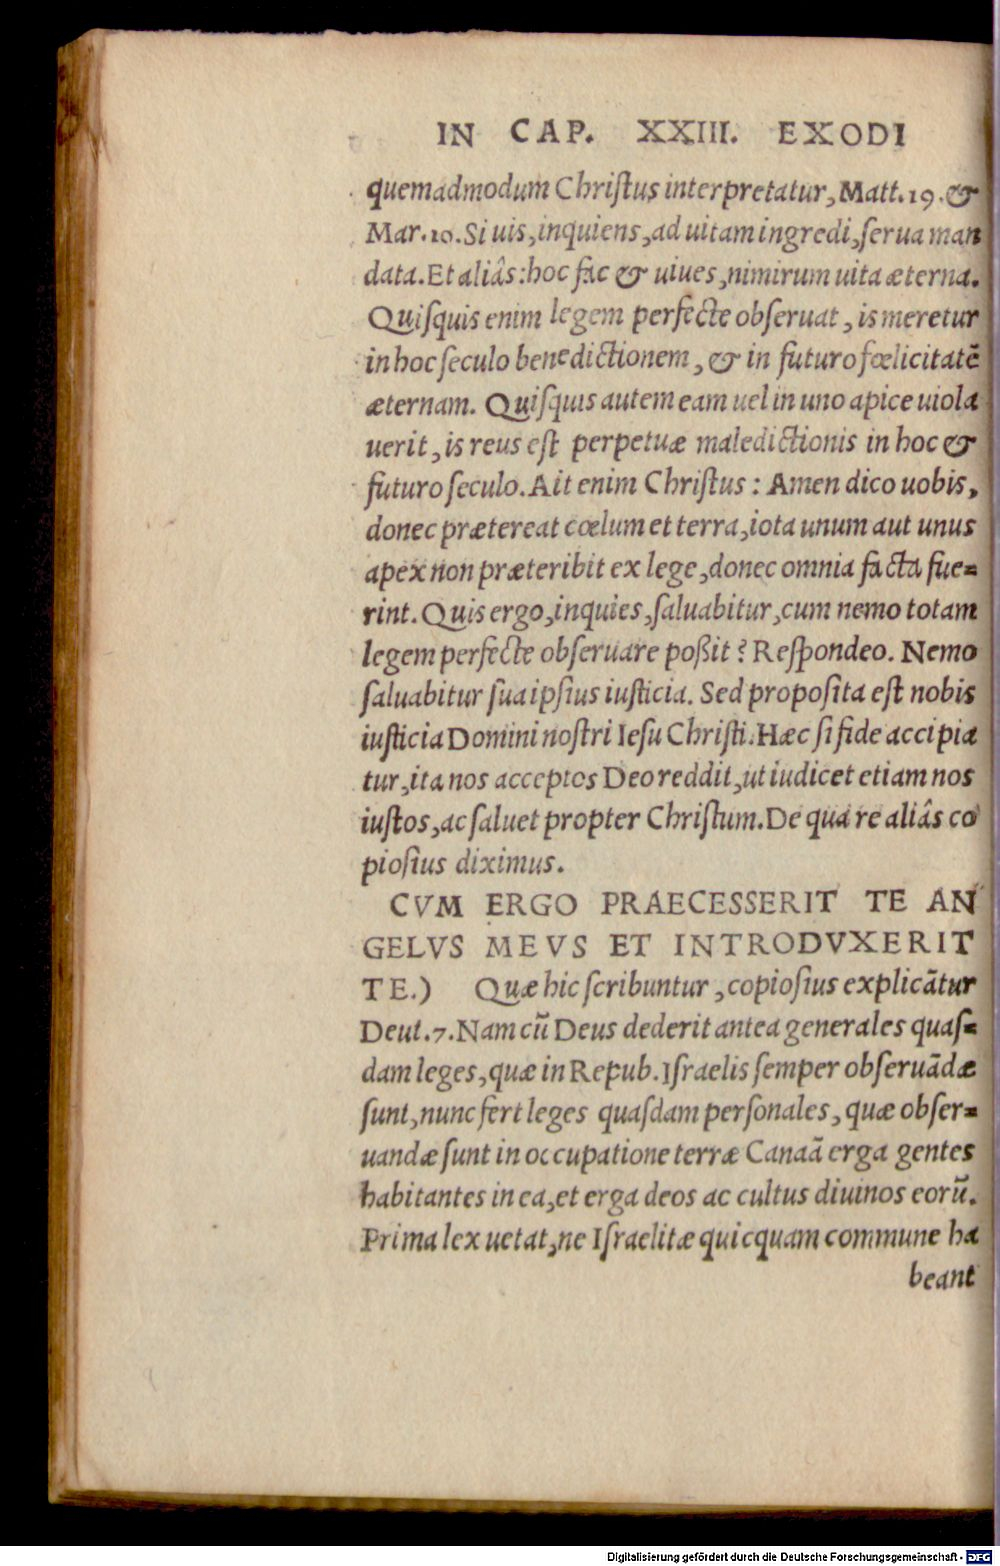 IN CAP. XXIII. EXODI
quemadmodum Chriſtus interpretatur, Matt. 19. &
Mar. 10. Si uis, inquiens, ad uitam ingredi, ſerua man
data. Et aliâs: hoc fac & uiues, nimirum uita æterna.
Quiſquis enim legem perfecte obſeruat, is meretur
in hoc ſeculo benedictionem, & in futuro fœlicitatẽ
æternam. Quiſquis autem eam uel in uno apice uiola
uerit, is reus eſt perpetuæ maledictionis in hoc &
futuro ſeculo. Ait enim Chriſtus: Amen dico uobis,
donec prætereat cœlum et terra, iota unum aut unus
apex non præteribit ex lege, donec omnia facta fue=
rint. Quis ergo, inquies, ſaluabitur, cum nemo totam
legem perfecte obſeruare poßit? Reſpondeo. Nemo
ſaluabitur ſua ipſius iuſticia. Sed propoſita eſt nobis
iuſticia Domini noſtri Ieſu Chriſti. Hæc ſi fide accipia
tur, ita nos acceptos Deo reddit, ut iudicet etiam nos
iuſtos, ac ſaluet propter Chriſtum. De qua re aliâs co
pioſius diximus.
CVM ERGO PRAECESSERIT TE AN
GELVS MEVS ET INTRODVXERIT
TE.) Quæ hic ſcribuntur, copioſius explicãtur
Deut. 7. Nam cũ Deus dederit antea generales quaſ=
dam leges, quæ in Repub. Iſraelis ſemper obſeruãdæ
ſunt, nunc fert leges quaſdam perſonales, quæ obſer=
uandæ ſunt in occupatione terræ Canaã erga gentes
habitantes in ea, et erga deos ac cultus diuinos eorũ.
Prima lex uetat, ne Iſraelitæ quicquam commune ha
beant
Digitalisierung gefördert durch die Deutsche Forschungsgemeinschaft - DFG